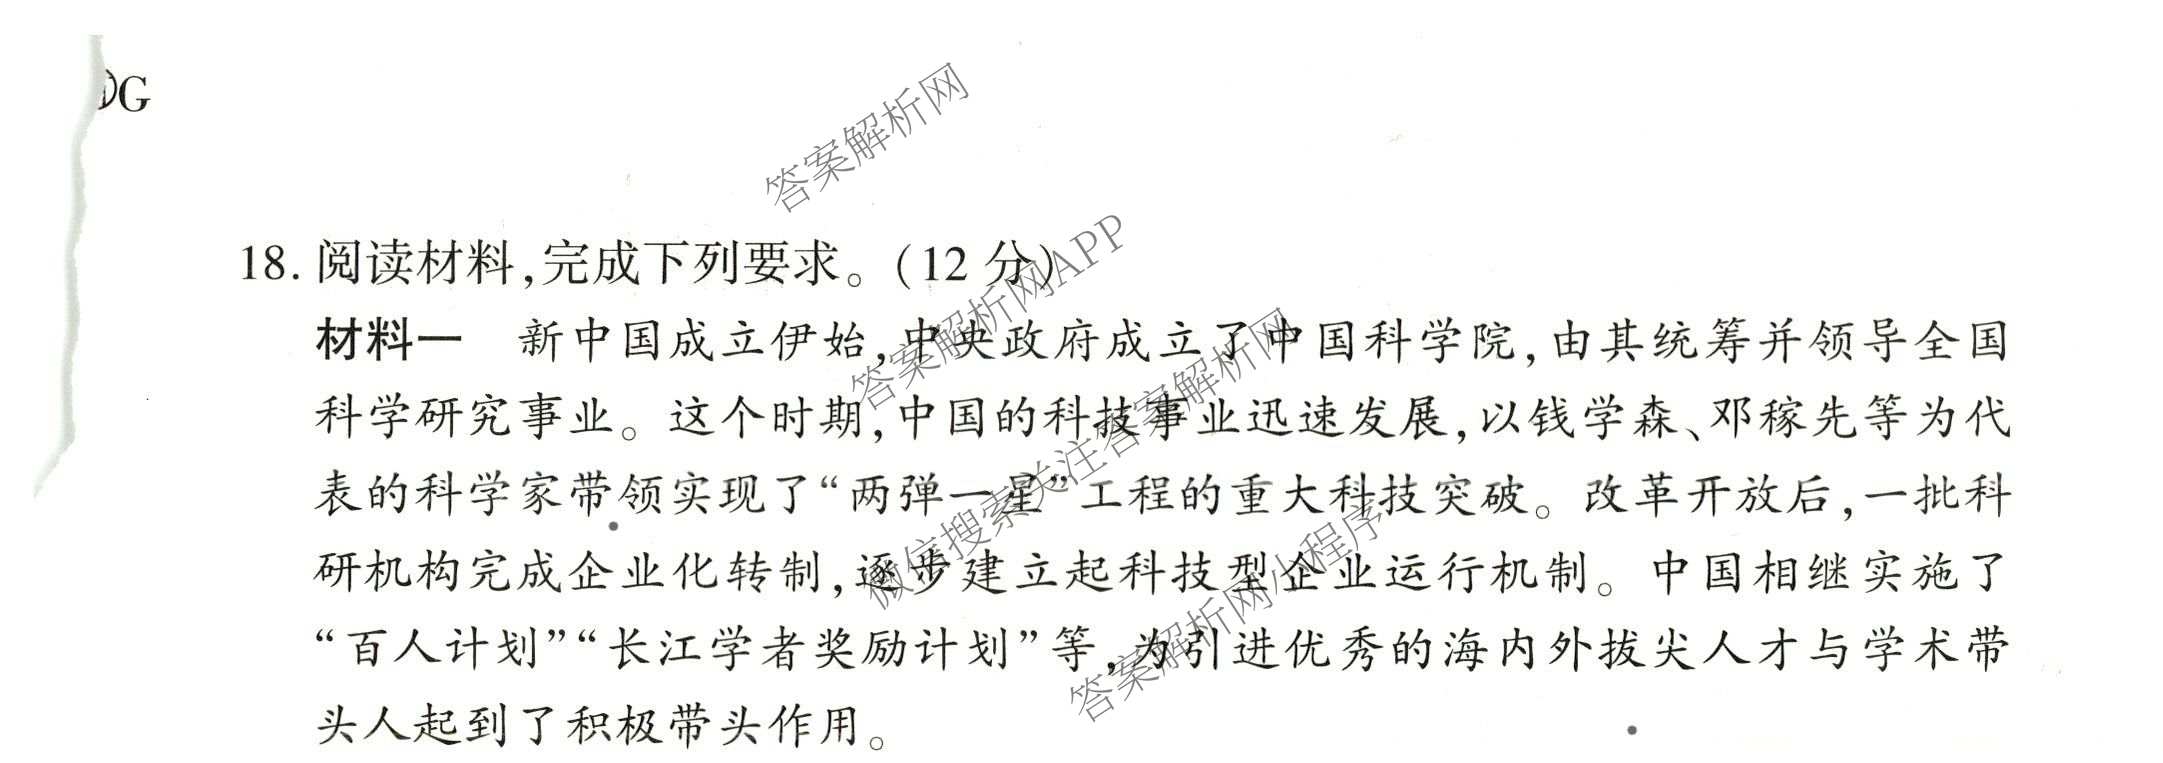 ①G
答案解析网
18. 阅读材料,完成下列要求。(12 分)
答案解析网APP
材料一 新中国成立伊始,中央政府成立了中国科学院,由其统筹并领导全国
科学研究事业。这个时期,中国的科技事业迅速发展,以钱学森、邓稼先等为代
表的科学家带领实现了“两弹一星”工程的重大科技突破。改革开放后,一批科
研机构完成企业化转制,逐步建立起科技型企业运行机制。中国相继实施了
“百人计划”“长江学者奖励计划”等,为引进优秀的海内外拔尖人才与学术带
头人起到了积极带头作用。
微信搜索关注答案解析网
答案解析网小程序